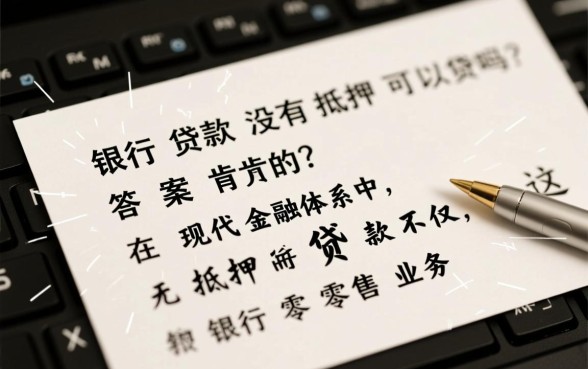 银行 贷款 没有 抵押 可以 贷吗?
答 案 肯肯的?
在 现代 金融体系中,
无 抵押 贷 款 不仅, 这
银行 零 零售 业务
X